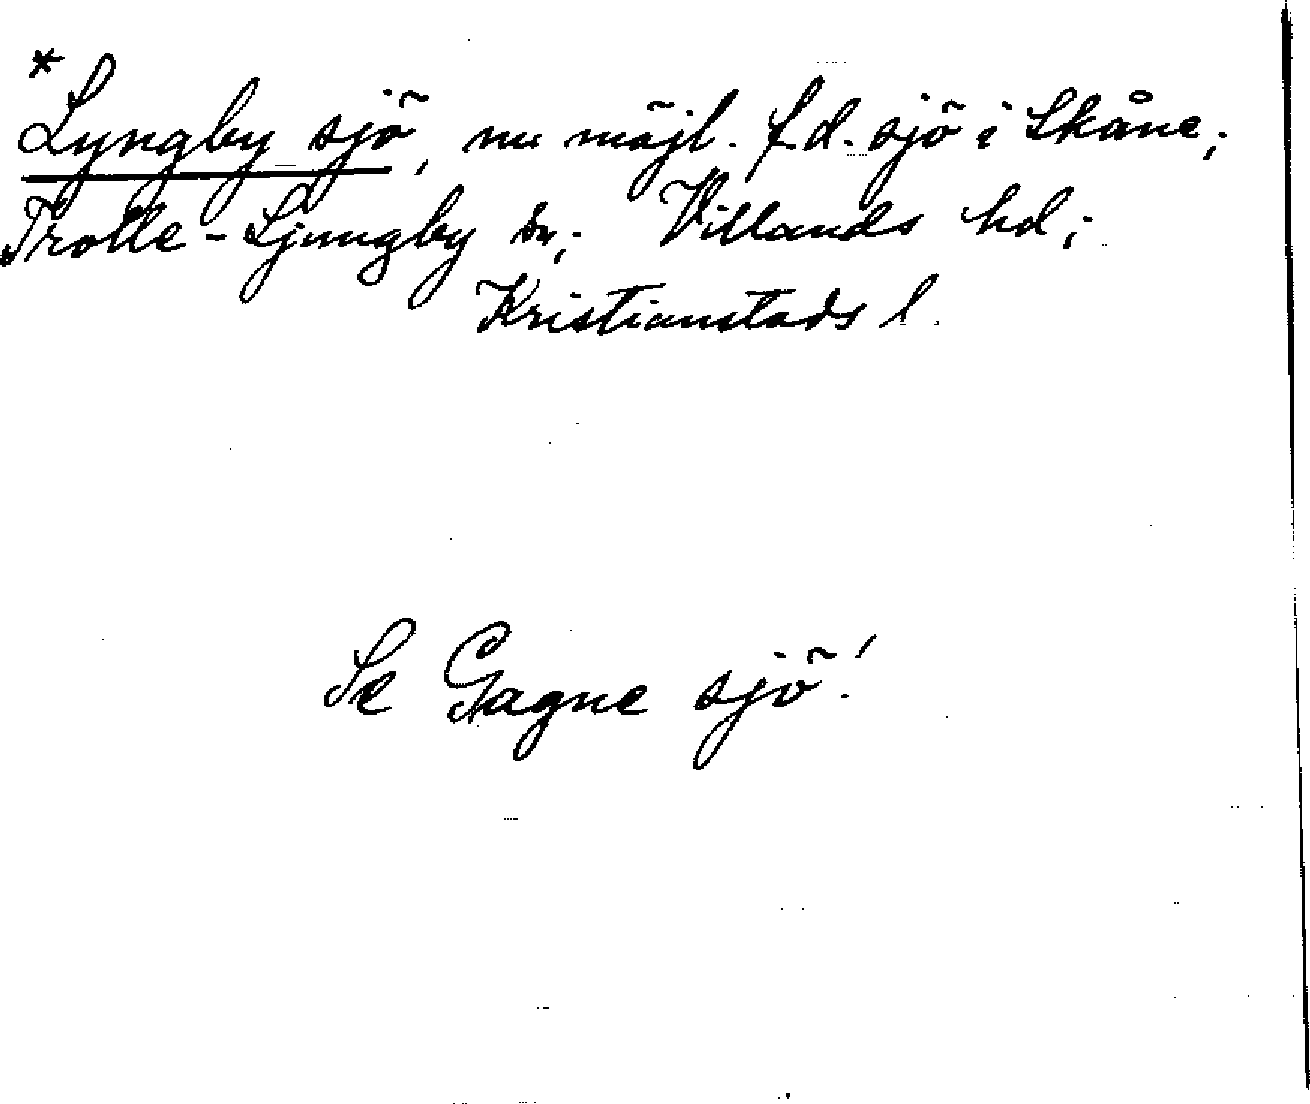 *
Lyngby sjö, nu möjl. f.d. sjö i Skåne;
Trolle-Ljungby sn; Villands hd;
Kristianstads l.
Se Gagne sjö!